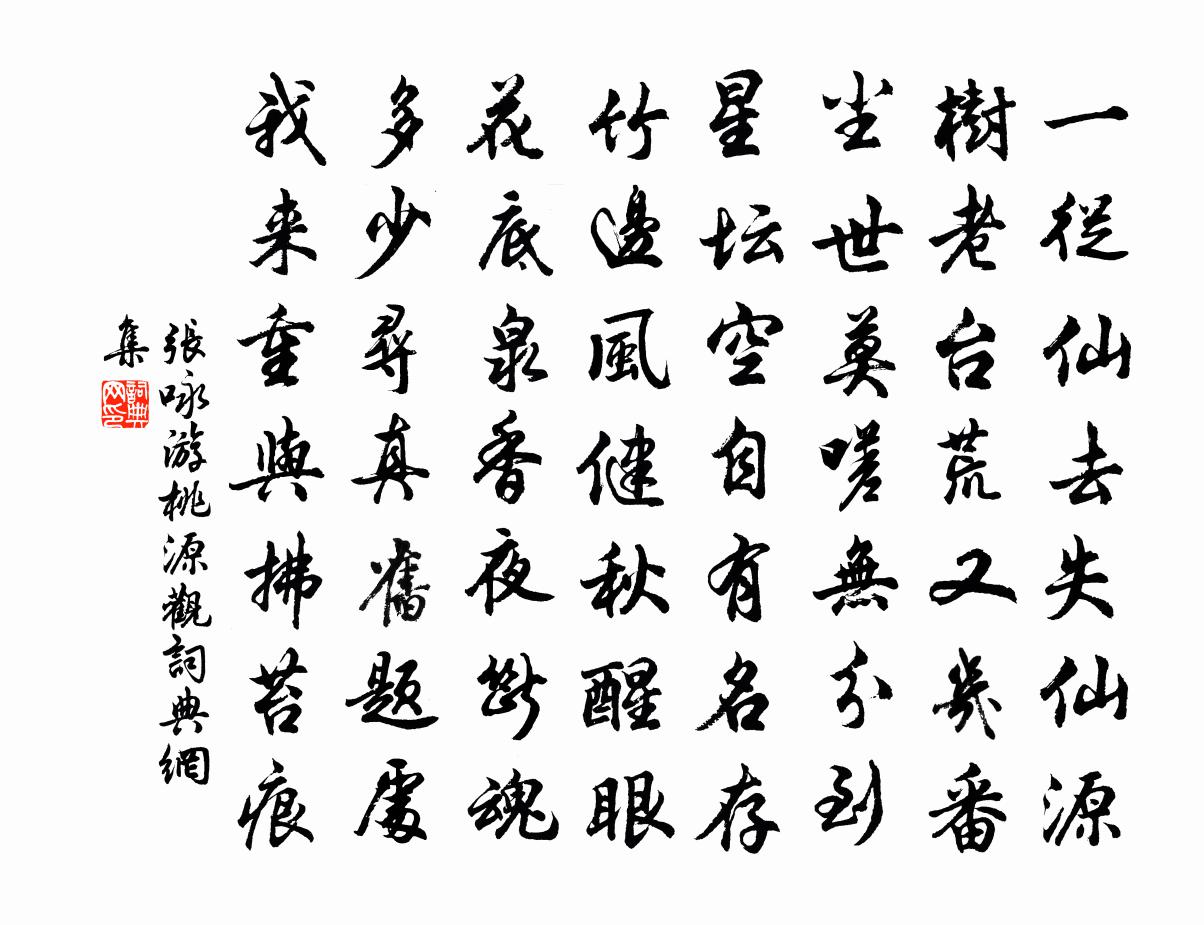 一從仙去失仙源
樹老台荒又幾番
尘世莫嗟無分到
星坛空自有名存
竹邊風健秋醒眼
花底泉香夜斷魂
多少尋真舊题處
我来重與拂苔痕
張咏游桃源觀詞典網
集
詞典
网印